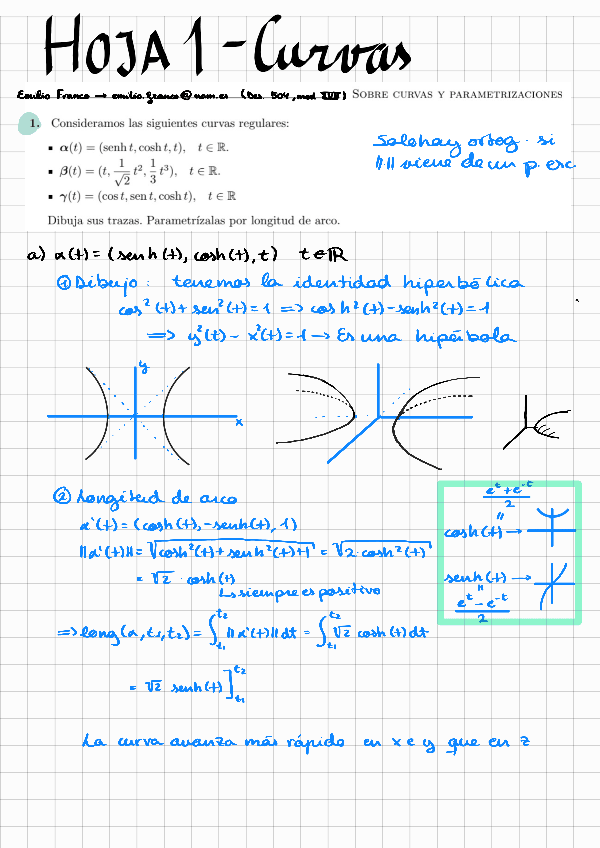 HOJA 1 - Curvas
Emilio Franco → emilio.franco@uam.es (Des. 504, mod XVII) SOBRE CURVAS Y PARAMETRIZACIONES
1. Consideramos las siguientes curvas regulares:
▪ α(t) = (senh t, cosh t, t), t ∈ ℝ.
▪ β(t) = (t, 1/√2 t², 1/3 t³), t ∈ ℝ.
▪ γ(t) = (cos t, sen t, cosh t), t ∈ ℝ
Dibuja sus trazas. Parametrízalas por longitud de arco.
Solo hay ortog. si
|| || viene de un p. esc.
a) α(t) = (senh(t), cosh(t), t) t∈ℝ
① Dibujo: tenemos la identidad hiperbólica
cos²(t) + sen²(t) = 1 => cosh²(t) - senh²(t) = 1
=> y²(t) - x²(t) = 1 → Es una hipérbola
y
x
② Longitud de arco
α'(t) = (cosh(t), -senh(t), 1)
||α'(t)|| = √cosh²(t) + senh²(t) + 1 = √2·cosh²(t)
= √2 · cosh(t)
↳ siempre es positivo
=> long(α, t₁, t₂) = ∫_{t₁}^{t₂} ||α'(t)|| dt = ∫_{t₁}^{t₂} √2 cosh(t) dt
= √2 senh(t)]_{t₁}^{t₂}
e^t + e^-t / 2
"
cosh(t) →
senh(t) →
"
e^t - e^-t / 2
La curva avanza más rápido en x e y que en z